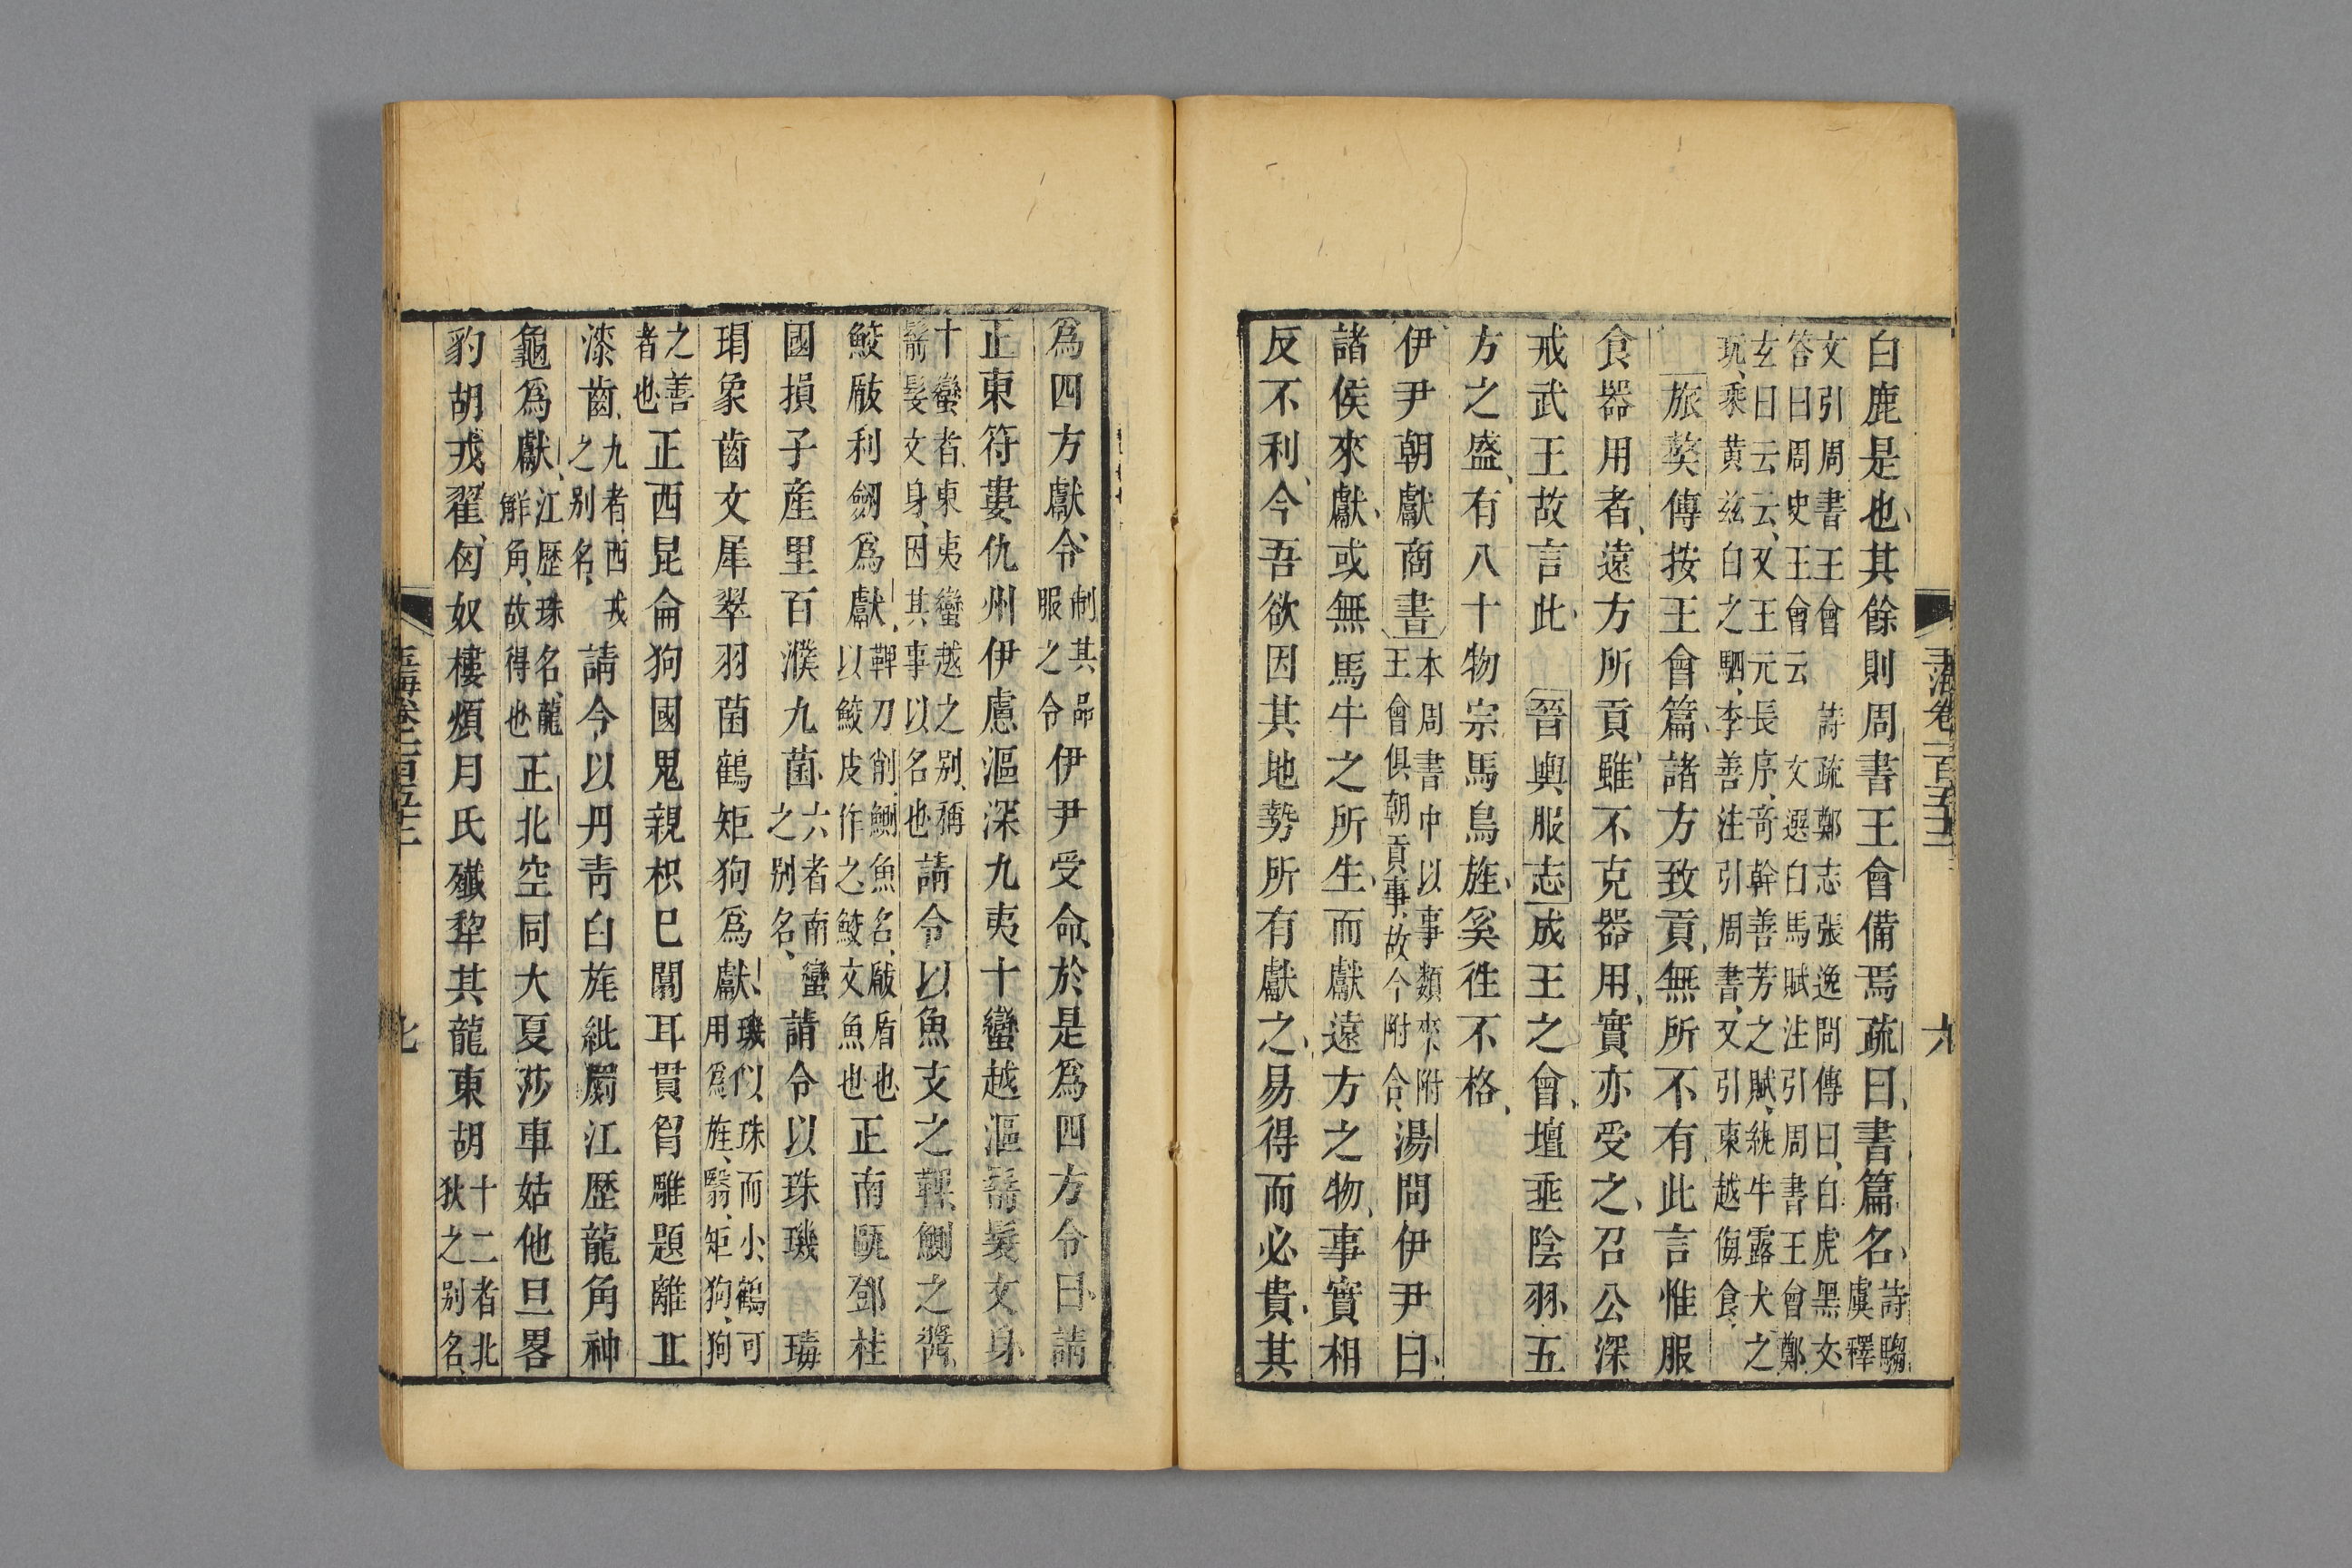 白鹿是也其餘則周書王會備焉疏曰書篇名詩騶虞釋
文引周書王會 詩疏鄭志張逸問傳曰白虎黑文
答曰周史王會云 文選白馬賦注引周書王會鄭
玄曰云云又王元長序奇幹善芳之賦紈牛露犬之
玩乘黃茲白之駟李善注引周書又引東越侮食
旅獒傳按王會篇諸方致貢無所不有此言惟服
食器用者遠方所貢雖不克器用實亦受之召公深
戒武王故言此 晉輿服志成王之會壇垂陰羽五
方之盛有八十物宗馬鳥旌奚往不格
伊尹朝獻商書本周書中以事類來附
王會俱朝貢事故今附合湯問伊尹曰
諸侯來獻或無馬牛之所生而獻遠方之物事實相
反不利今吾欲因其地勢所有獻之易得而必貴其
玉海卷一百五十二
六
為四方獻令制其品
服之令伊尹受命於是為四方令曰請
正東符婁仇州伊慮漚深九夷十蠻越漚鬋髮文身
十蠻者東夷蠻越之別稱
鬋髮文身因其事以名也請令以魚支之鞞鰂之醬
鮫瞂利劒為獻鞞刀削鰂魚名瞂盾也
以鮫皮作之鮫文魚也正南甌鄧桂
國損子產里百濮九菌六者南蠻
之別名請令以珠璣瑇
瑁象齒文犀翠羽菌鶴矩狗為獻璣似珠而小鶴可
用為旌翳矩狗狗
之善
者也正西昆侖狗國鬼親枳巳闟耳貫胷雕題離丘
漆齒九者西戎
之別名請令以丹青白旄紕罽江歷龍角神
龜為獻江歷珠名龍
解角故得也正北空同大夏莎車姑他旦畧
豹胡戎翟匈奴樓煩月氏孅犂其龍東胡十二者北
狄之別名
玉海卷一百五十二
七